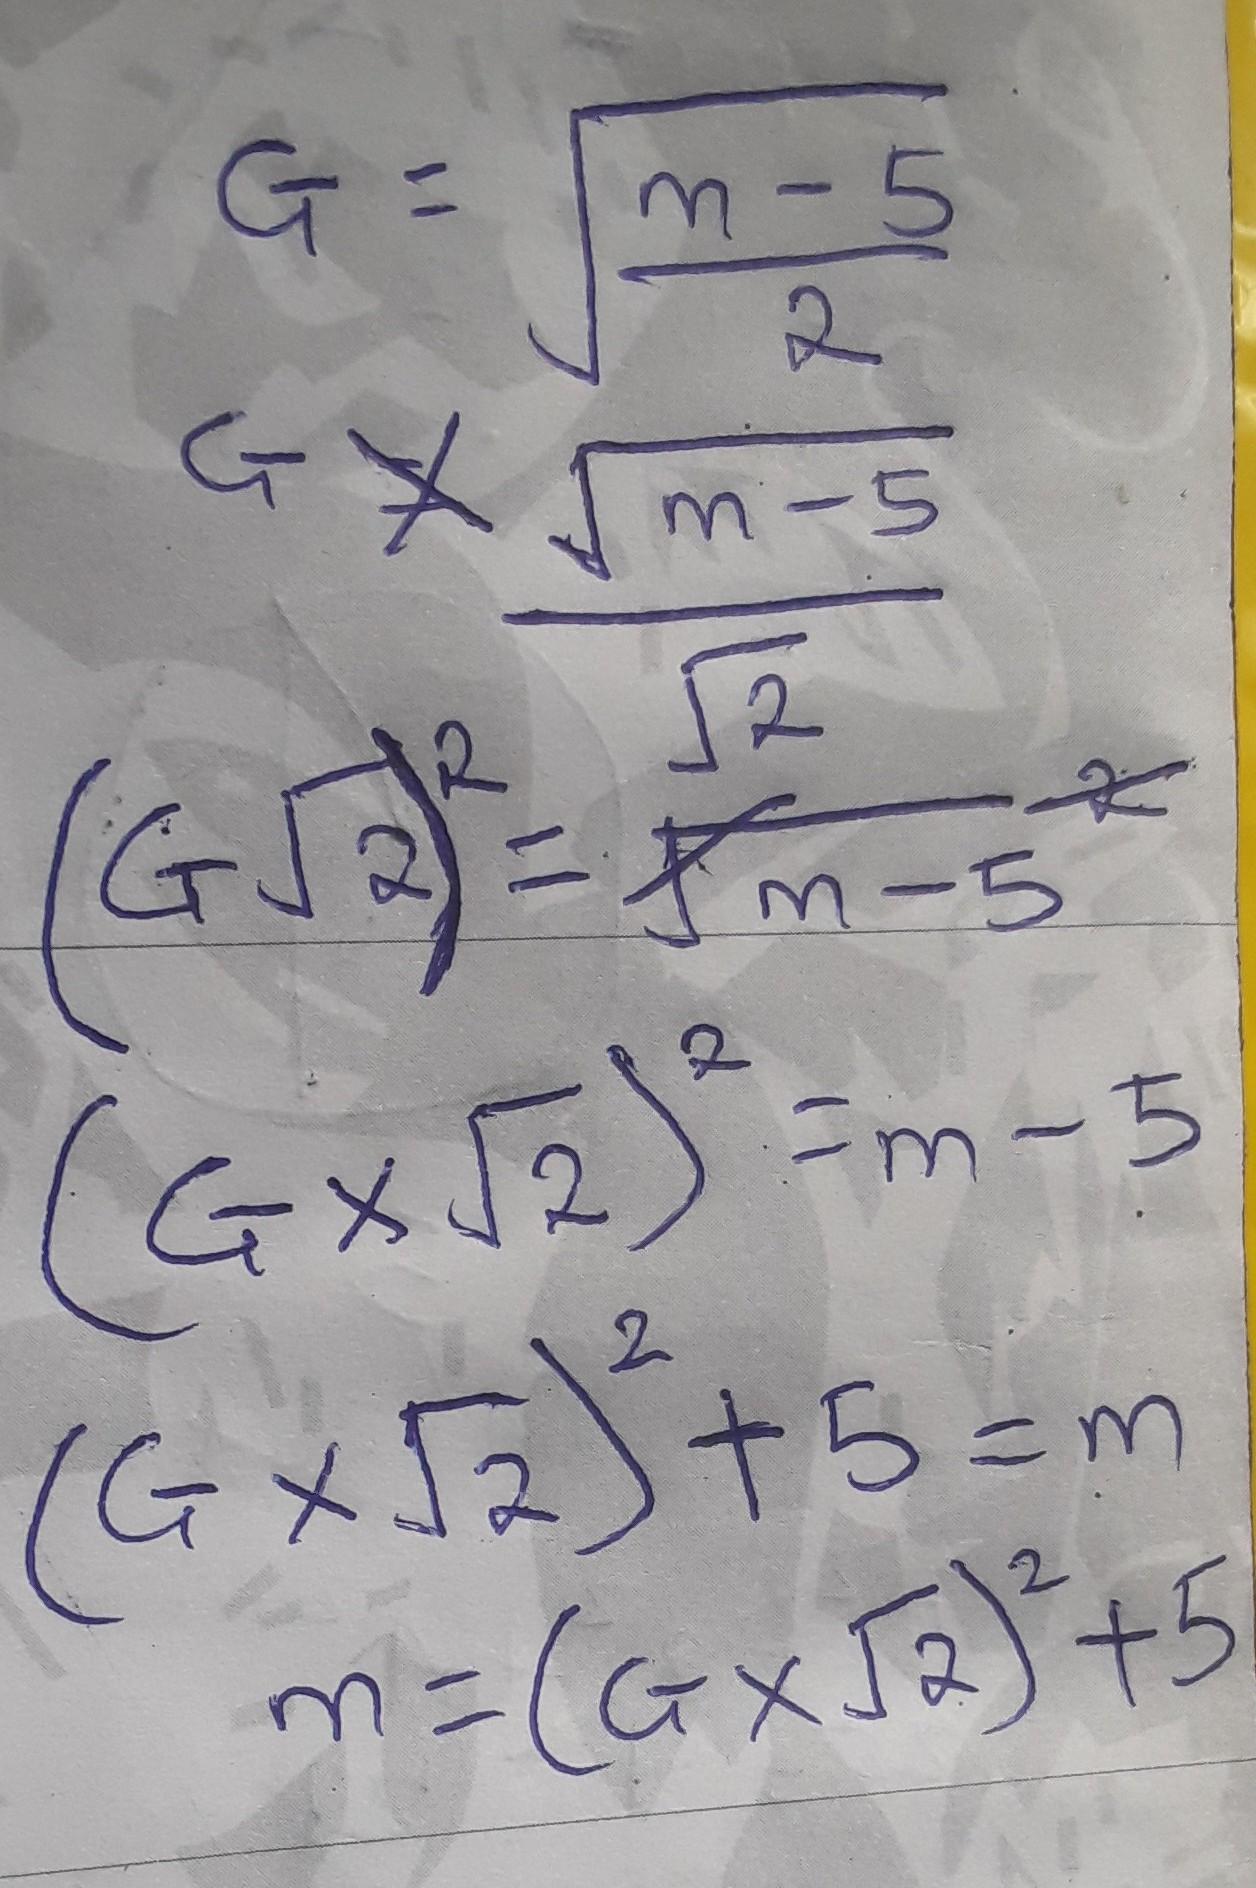 G = √((m - 5)/2)
G × √(m - 5)/√2
(G√2)² = √(m - 5)²
(G × √2)² = m - 5
(G × √2)² + 5 = m
m = (G × √2)² + 5